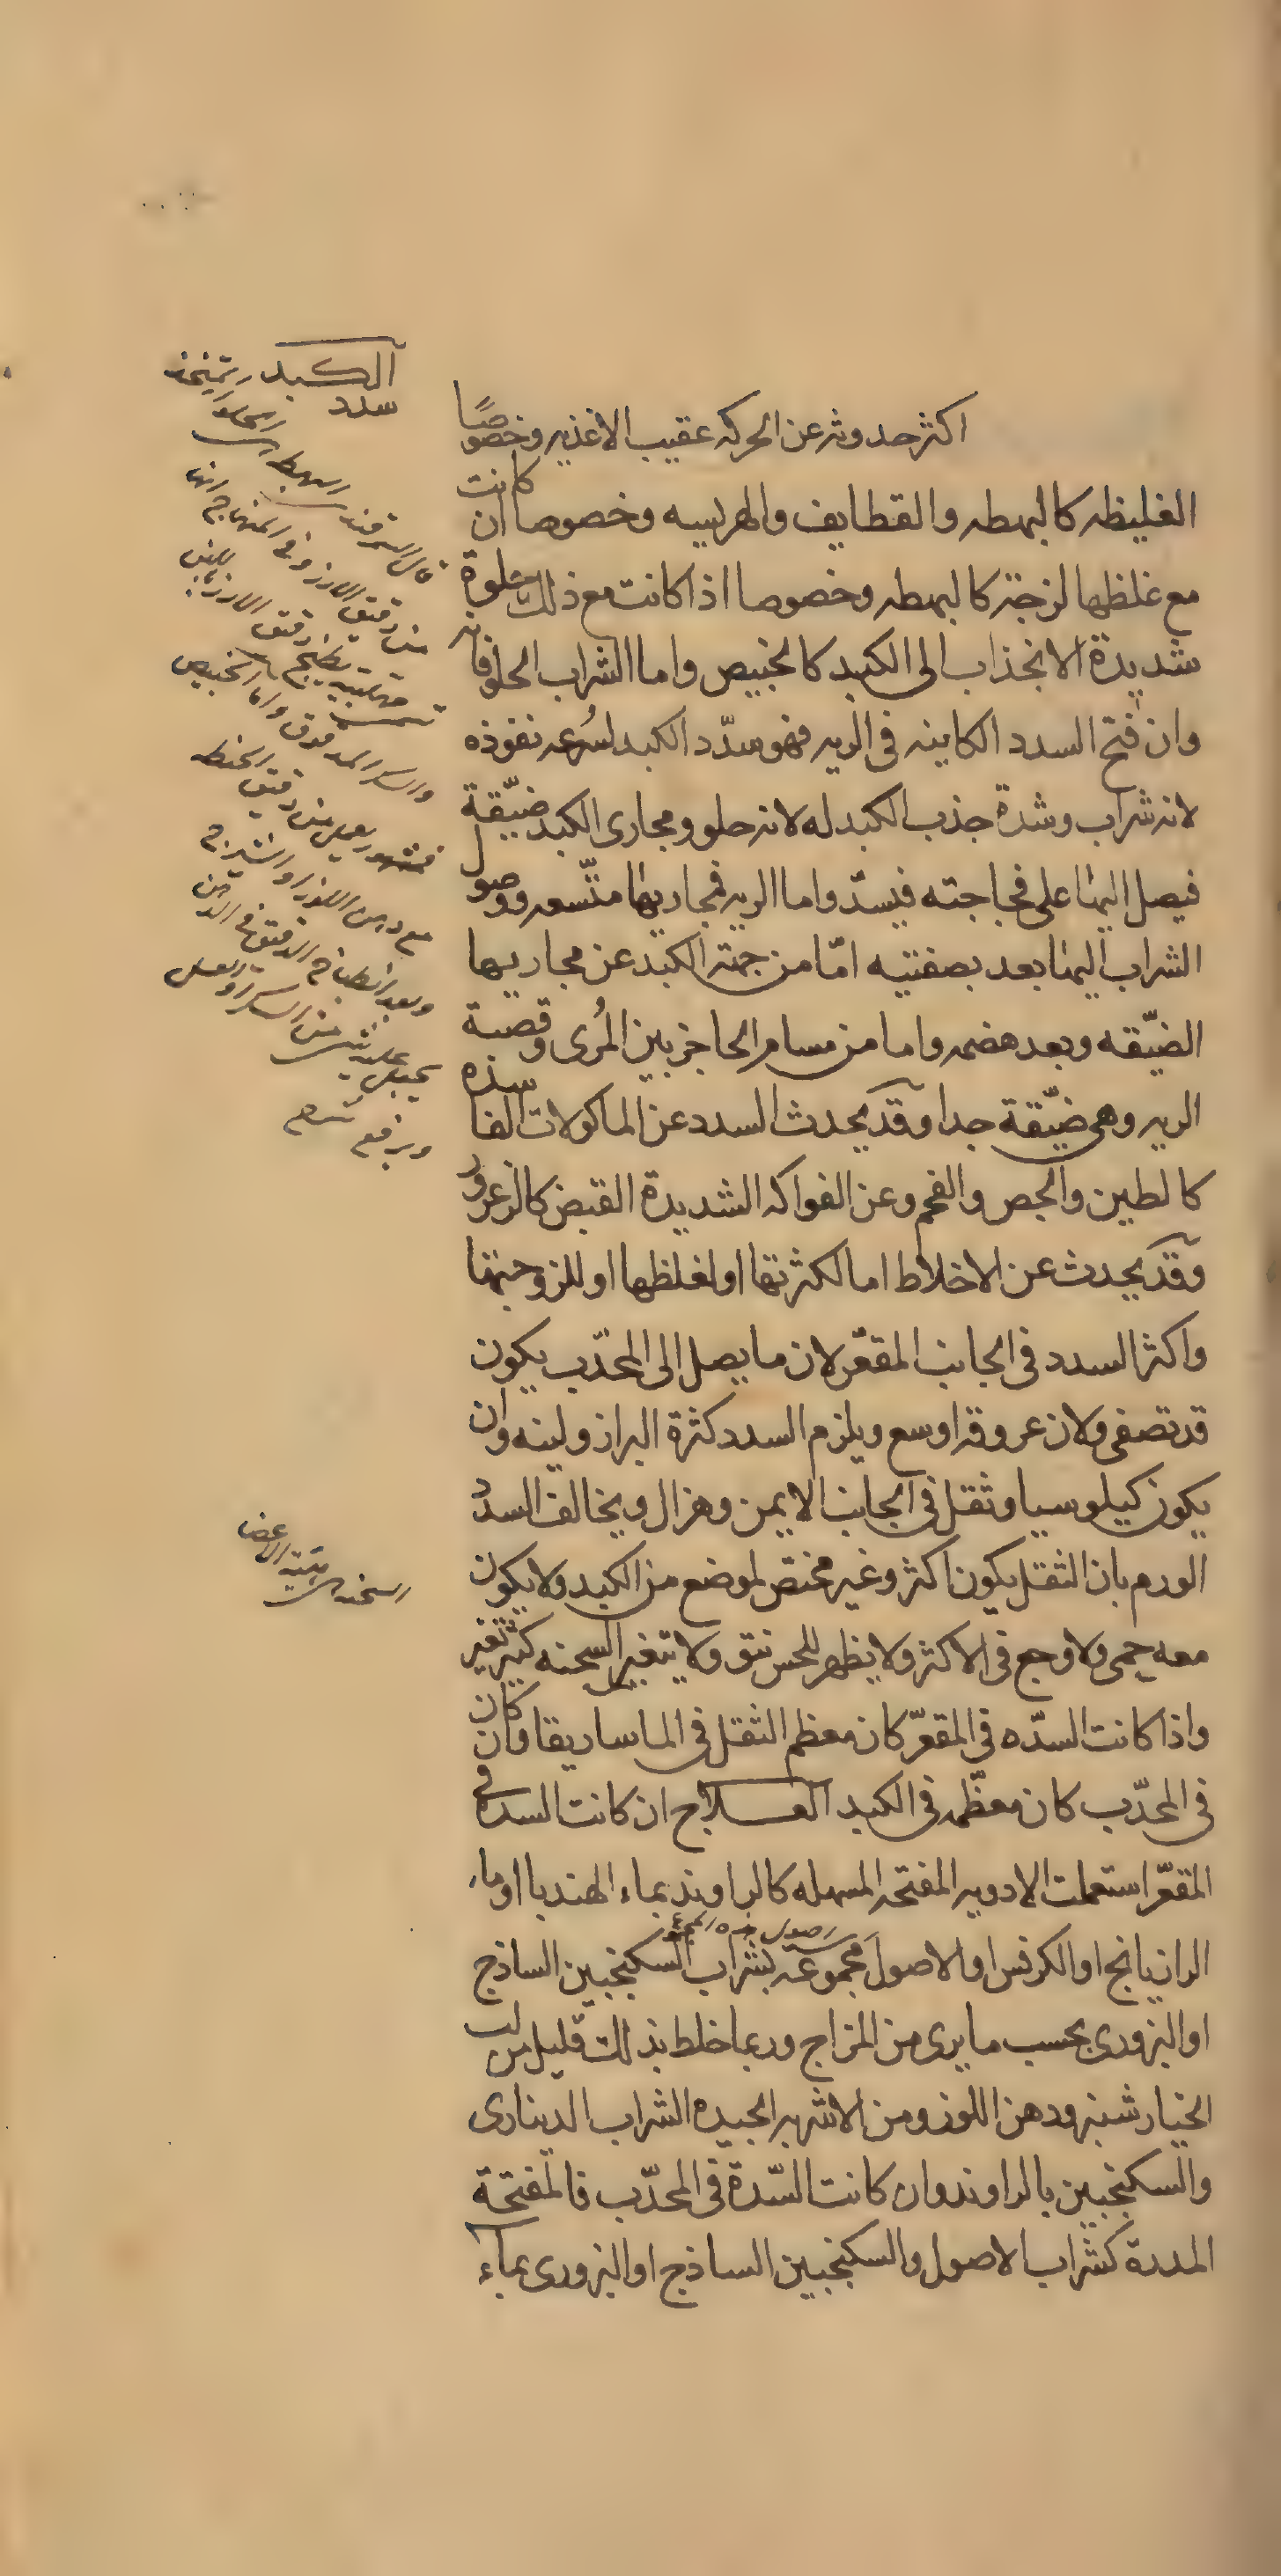 سدد الكبد
اكثر حدوثه عن الحركه عقيب الاغذيه وخصوصًا
الغليظه كالبهطه والقطايف والهريسه وخصوصا ان كانت
مع غلظها لزجة كالبهطه وخصوصا اذا كانت مع ذلك حلوة
شديدة الانجذاب الى الكبد كالخبيص واما الشراب الحلو فانه
وان فتح السدد الكاينه فى الريه فهو مسدّد الكبد لسُرعه نفوذه
لانه شراب وشدة جذب الكبد له لانه حلو ومجارى الكبد ضيّقة
فيصل اليها على فجاجته فيسدّ واما الريه فمجاريها متّسعه ووصول
الشراب اليها بعد تصفيته امّا من جهة الكبد عن مجاريها
الضيّقه وبعد هضمه واما من مسام الحاجز بين المُرى وقصبة
الريه وهى ضيّقة جدا وقد يحدث السدد عن الماكولات الفاسده
كالطين والجص والفحم وعن الفواكه الشديدة القبض كالزعرور
وقد يحدث عن الاخلاط اما لكثرتها او لغلظها او للزوجتها
واكثر السدد فى الجانب المقعّر لان ما يصل الى المحدّب يكون
قد تصفى ولان عروقه اوسع ويلزم السدد كثرة البراز ولينه وان
يكون كيلوسيا وثقل فى الجانب الايمن وهزال ويخالف السدد
الورم بان الثقل يكون اكثر وغير مختص لموضع من الكبد ولا يكون
معه حمى ولا وجع فى الاكثر ولا يظهر للحس نتو ولا يتغير السحنه كثير تغير
واذا كانت السدّه فى المقعرّ كان معظم الثقل فى الماساريقا وان كان
فى المحدّب كان معظمه فى الكبد العلاج ان كانت السدة فى
المقعّر استعملت الادويه المفتحه المسهله كالراوند بماء الهندبا او ماء
الرازيانج او الكرفس او الاصول مجموعة بشراب السكنجبين الساذج
او البزورى بحسب ما يرى من المزاج وربما خلط بذلك قليل من لب
الخيارشنبر ودهن اللوز ومن الاشربه الجيده الشراب الدينارى
والسكنجبين بالراوند وان كانت السّدة فى المحدّب فالمفتحة
المدرة كشراب الاصول والسكنجبين الساذج او البزورى بماء
من دقيق الارز وفى المنهاج انها
يطبخ دقيق الارز باللبن
والسكر المدقوق واما الخبيص
فمشهور يعمل من دقيق الحنطه
مع دهن اللوز او الشيرج
وبعد انطباخ الدقيق فى الدهن
يجعل عليه شى من السكر او العسل
ويرفع